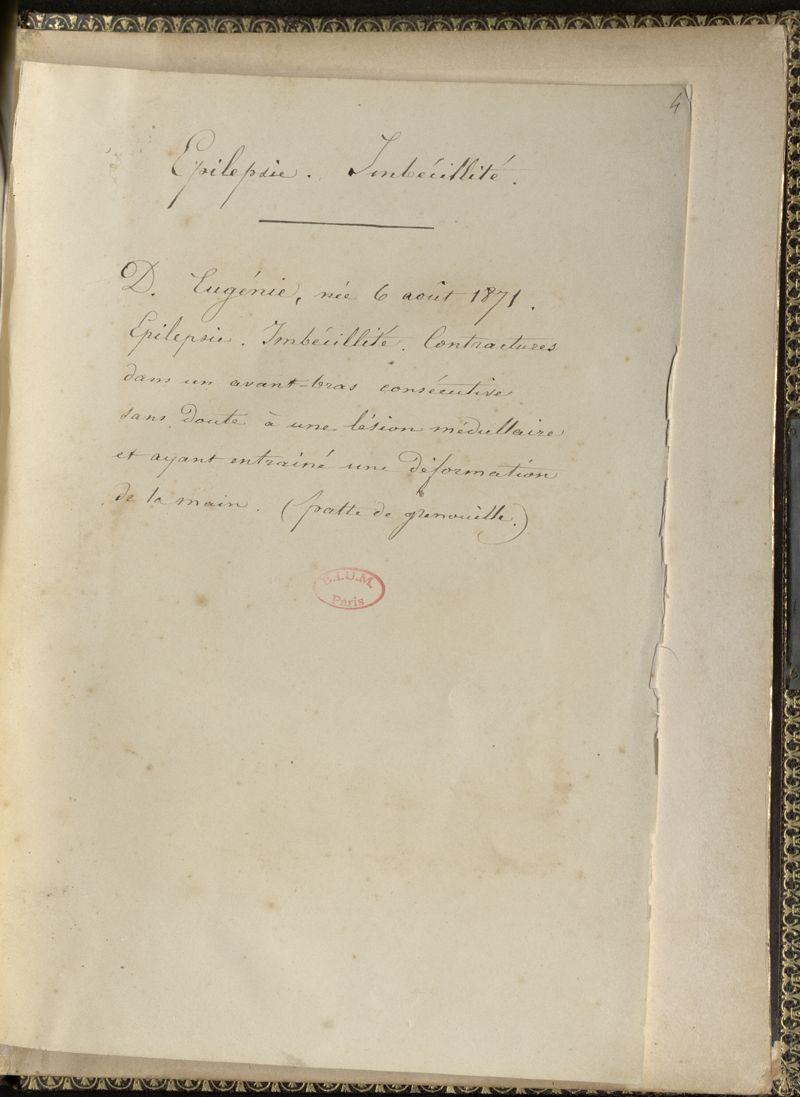 4
Epilepsie. Imbécillité.
D. Eugénie, née 6 août 1871.
Epilepsie. Imbécillité. Contractures
dans un avant-bras consécutive
sans doute à une lésion médullaire
et ayant entraîné une déformation
de la main. (patte de grenouille.)
B.I.U.M.
Paris